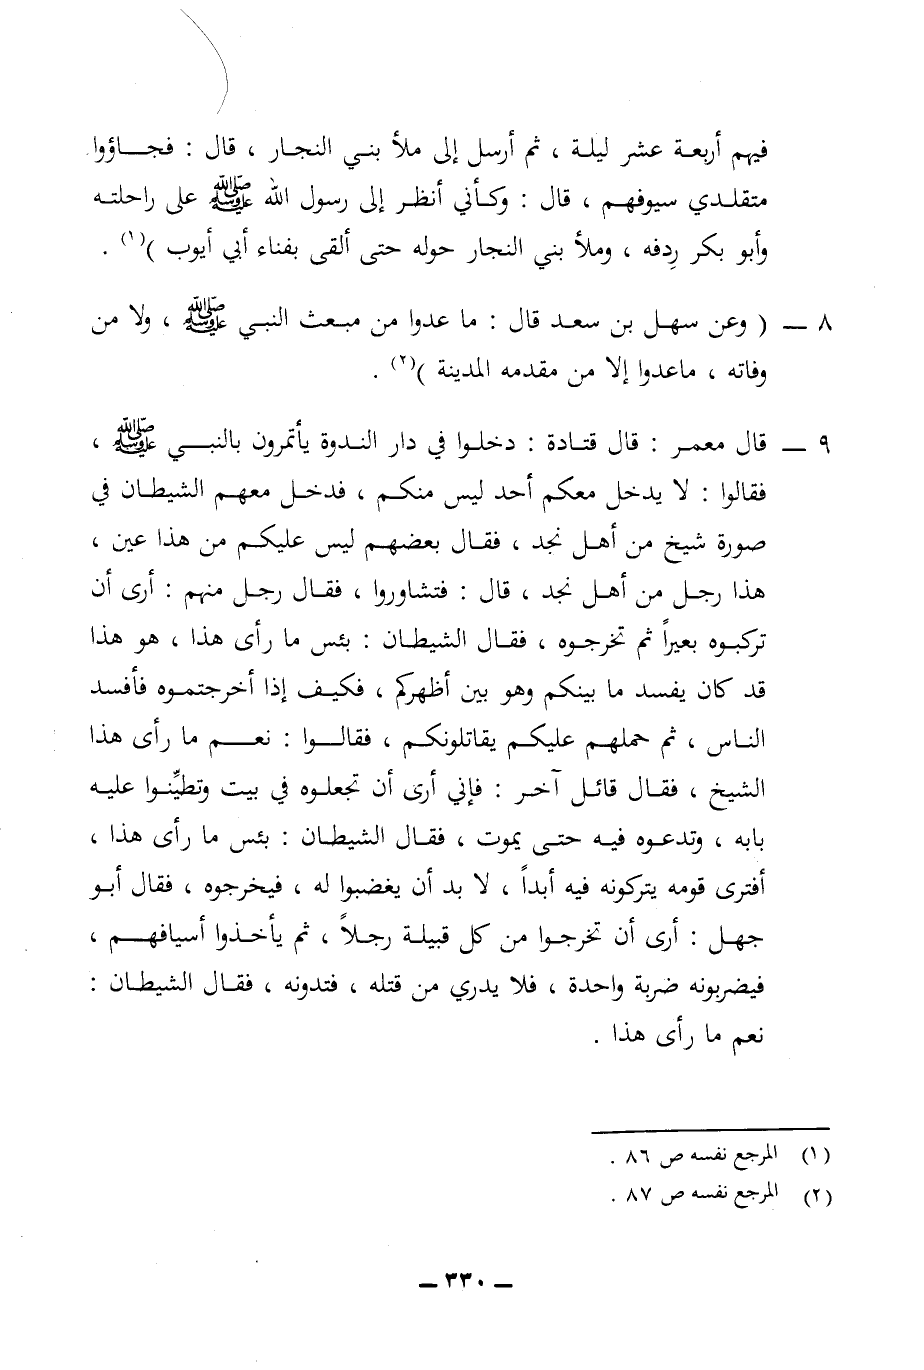 فيهم أربعة عشر ليلة ، ثم أرسل إلى ملأ بني النجار ، قال : فجاؤوا
متقلدي سيوفهم ، قال : وكأني أنظر إلى رسول الله ﷺ على راحلته
وأبو بكر رِدفه ، وملأ بني النجار حوله حتى ألقى بفناء أبي أيوب )(١) .
٨ ـ ( وعن سهل بن سعد قال : ما عدوا من مبعث النبي ﷺ ، ولا من
وفاته ، ماعدوا إلا من مقدمه المدينة )(٢) .
٩ ـ قال معمر : قال قتادة : دخلوا في دار الندوة يأتمرون بالنبي ﷺ ،
فقالوا : لا يدخل معكم أحد ليس منكم ، فدخل معهم الشيطان في
صورة شيخ من أهل نجد ، فقال بعضهم ليس عليكم من هذا عين ،
هذا رجل من أهل نجد ، قال : فتشاوروا ، فقال رجل منهم : أرى أن
تركبوه بعيراً ثم تخرجوه ، فقال الشيطان : بئس ما رأى هذا ، هو هذا
قد كان يفسد ما بينكم وهو بين أظهركم ، فكيف إذا أخرجتموه فأفسد
الناس ، ثم حملهم عليكم يقاتلونكم ، فقالوا : نعم ما رأى هذا
الشيخ ، فقال قائل آخر : فإني أرى أن تجعلوه في بيت وتطيِّنوا عليه
بابه ، وتدعوه فيه حتى يموت ، فقال الشيطان : بئس ما رأى هذا ،
أفترى قومه يتركونه فيه أبداً ، لا بد أن يغضبوا له ، فيخرجوه ، فقال أبو
جهل : أرى أن تخرجوا من كل قبيلة رجلاً ، ثم يأخذوا أسيافهم ،
فيضربونه ضربة واحدة ، فلا يدري من قتله ، فتدونه ، فقال الشيطان :
نعم ما رأى هذا .
(١) المرجع نفسه ص ٨٦ .
(٢) المرجع نفسه ص ٨٧ .
ـ ٣٣٠ ـ